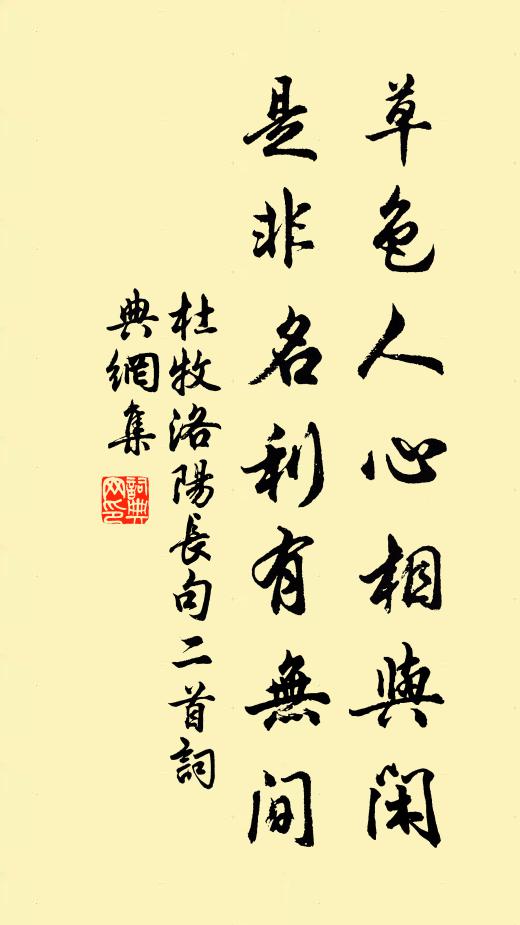 草色人心相與閑
是非名利有無間
杜牧洛陽長句二首詞
典網集
詞典
网印